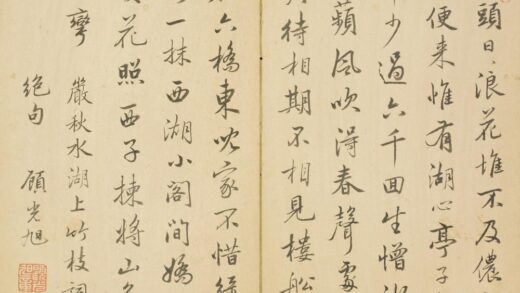 頭日日浪花堆不及儂
便来惟有湖心亭子
少過六千回生憎
蘋風吹得春聲
待相期不相見樓船
六橋東畔家不惜
一抹西湖小閣間嬌
花照西子揀將山
彎
嚴秋水湖上竹枝詞
絕句
顧光旭